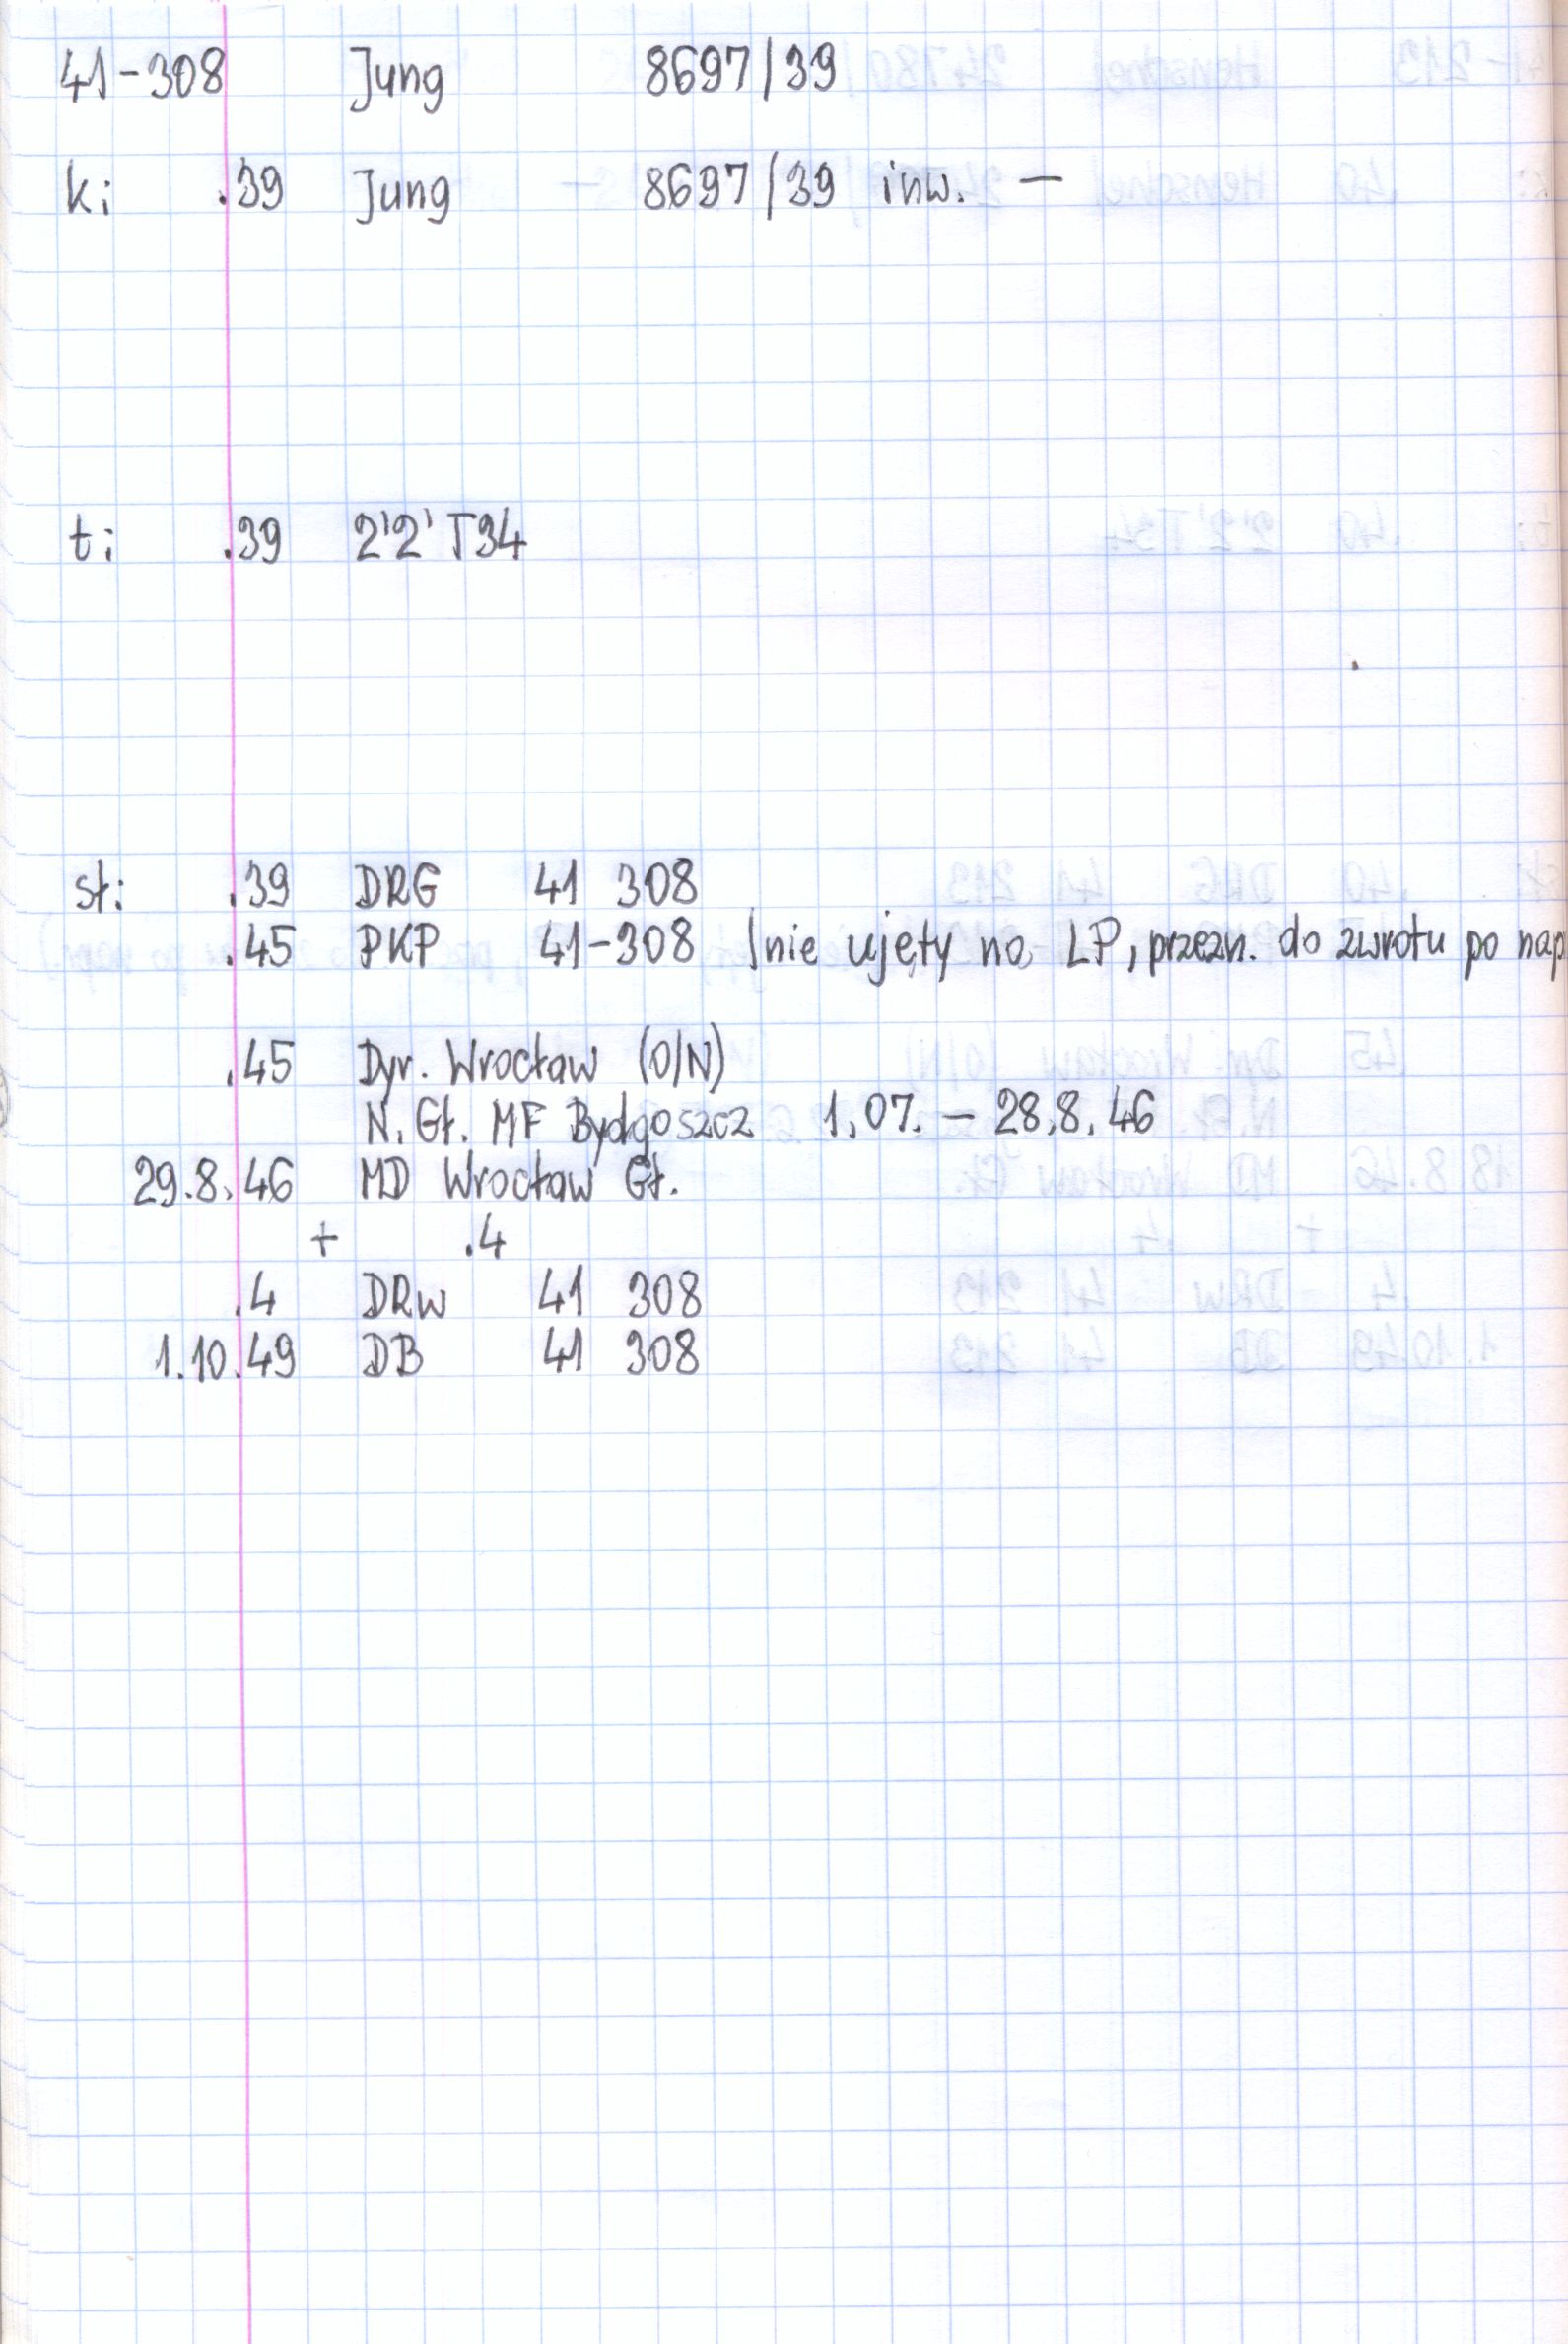 41-308 Jung 8697/39
k: .39 Jung 8697/39 inw. —
t: .39 2'2' T34
sł: .39 DRG 41 308
.45 PKP 41-308 (nie ujęty na LP, przezn. do zwrotu po nap
.45 Dyr. Wrocław (O/N)
N. Gł. MF Bydgoszcz 1.07. — 28.8.46
29.8.46 MD Wrocław Gł.
+ .4
.4 DRw 41 308
1.10.49 DB 41 308